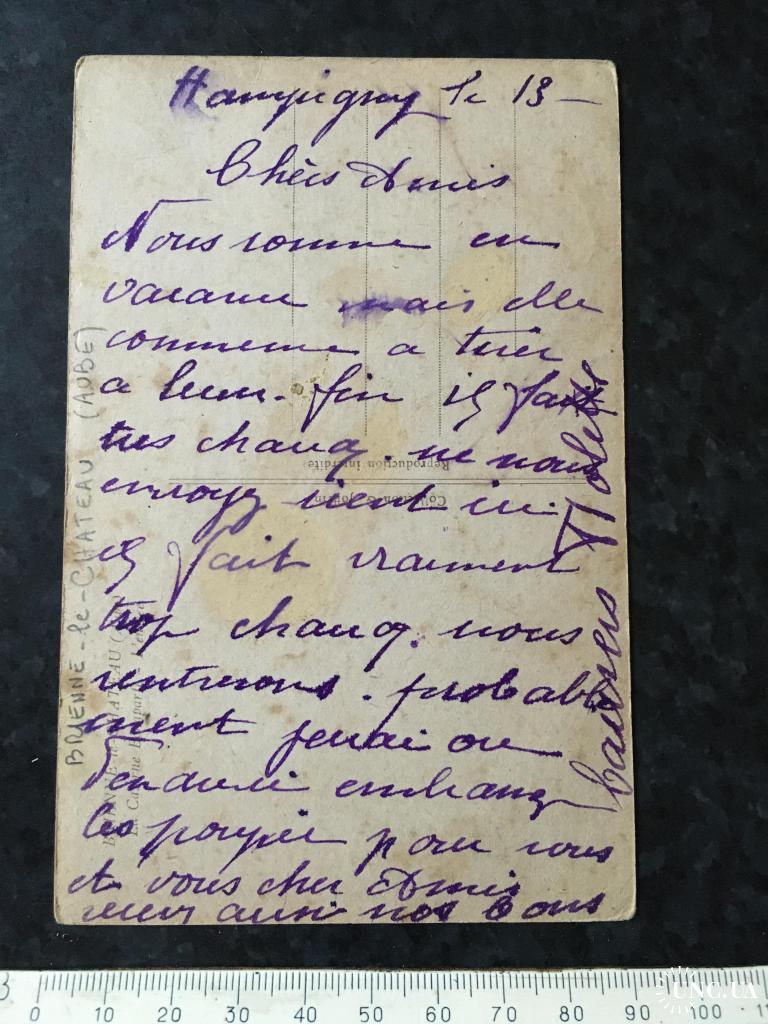 Hampigny le 13 —
Chèrs Amis
Nous somme en
vacance mais elle
commence a tirer
a leur. fin il fait
tres chaud. ne nous
envoyez rient ici
il fait vraiment
trop chaud. nous
rentrerons. probable
ment jeudi ou
Vendredi
les poupée pour vous
et vous cher Amis
recevez aussi nos bons
baisers Violette
BRIENNE-le-CHATEAU (AUBE)
Reproduction interdite
Collection
BRIENNE-le-CHATEAU
La Caserne
0 10 20 30 40 50 60 70 80 90 100
UNC.UA